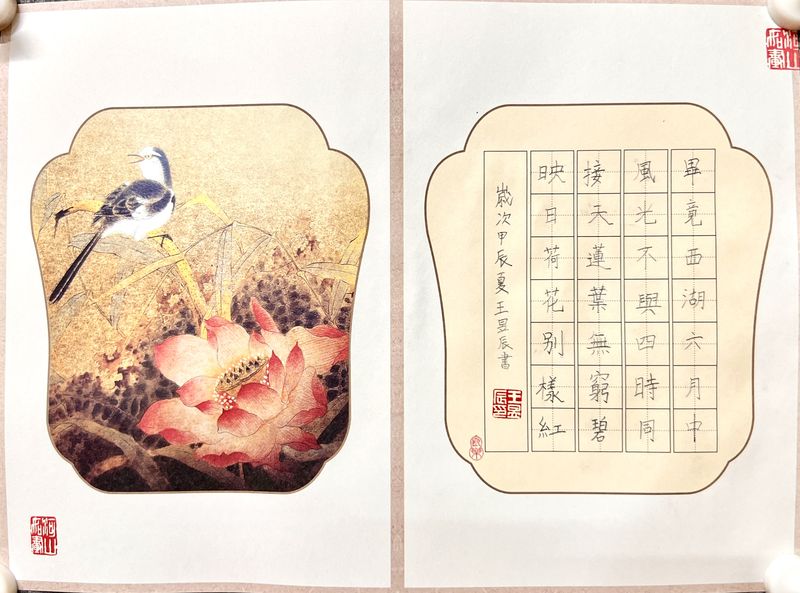 畢竟西湖六月中
風光不與四時同
接天蓮葉無窮碧
映日荷花别樣紅
歲次甲辰夏王昱辰書
王昱辰印